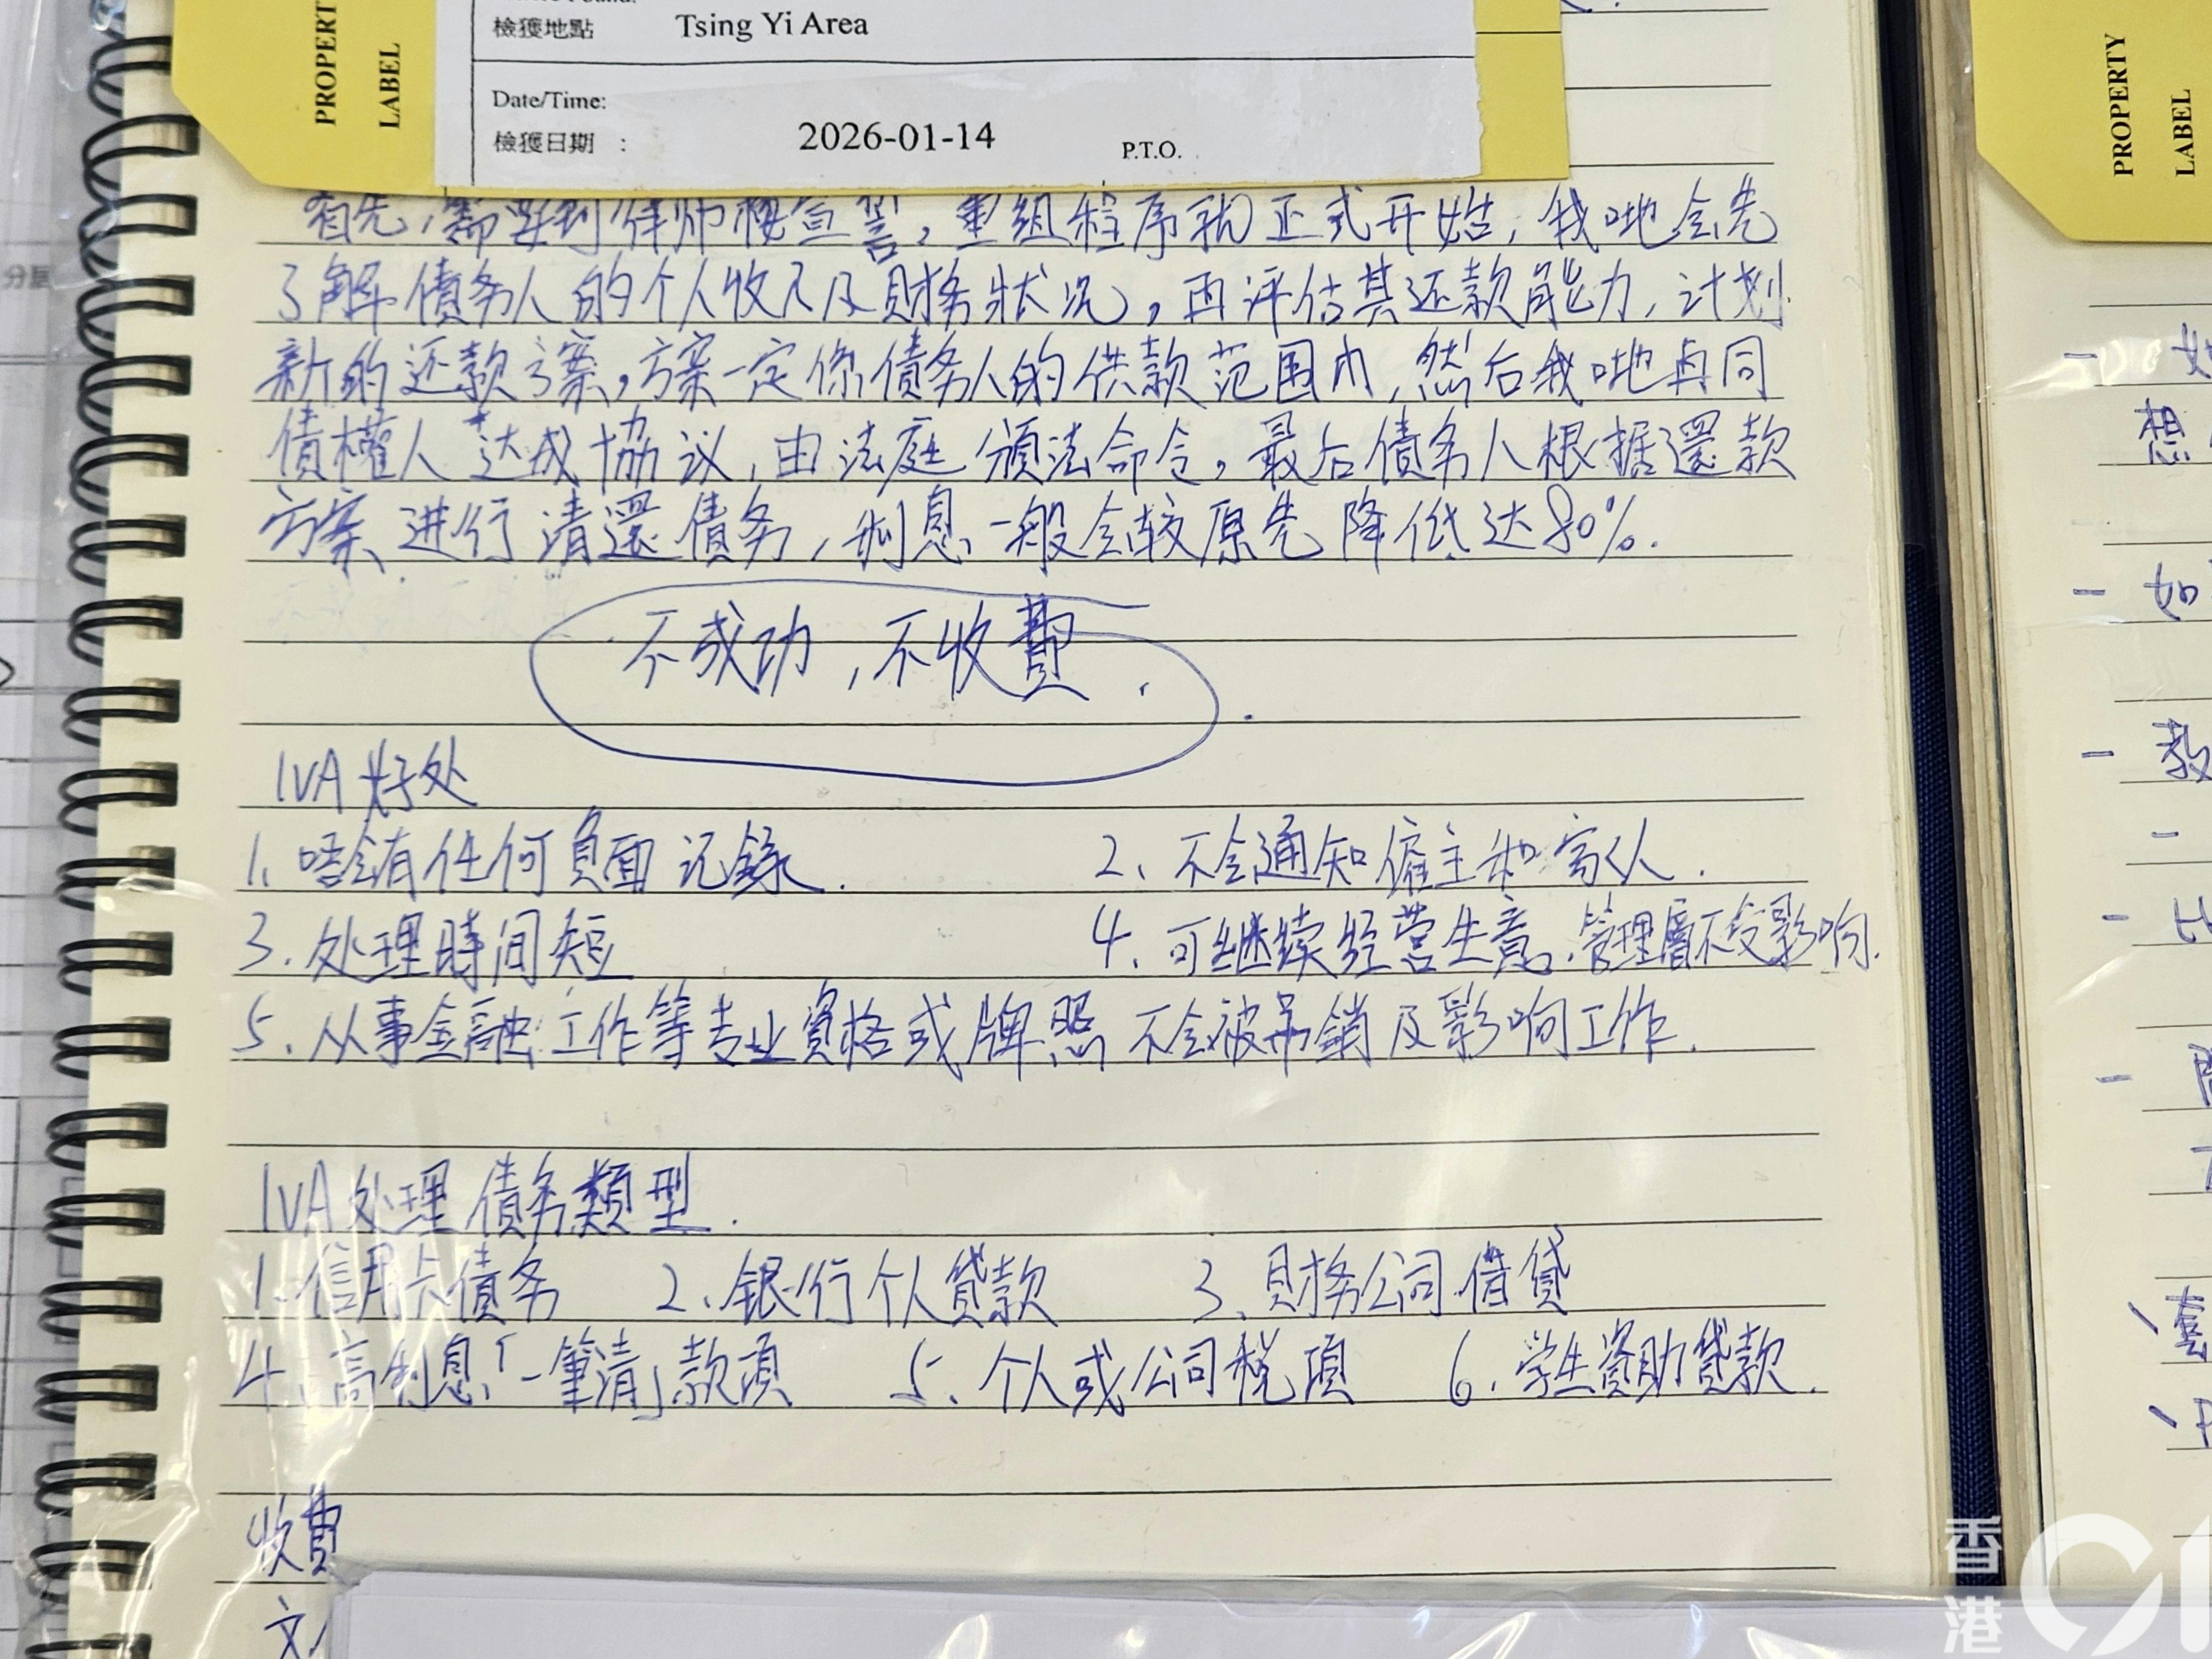 PROPERTY
LABEL
檢獲地點 Tsing Yi Area
Date/Time:
檢獲日期 : 2026-01-14 P.T.O.
首先,需要到律师楼宣誓,重組程序就正式开始,我哋会先
了解債务人的个人收入及財務狀况,再评估其还款能力,计划
新的还款方案,方案一定係債务人的供款范围内,然后我哋再同
債權人达成協议,由法庭頒法命令,最后債务人根据還款
方案进行清還債务,利息一般会較原先降低达80%.
不成功,不收費.
IVA好处
1、唔會有任何負面记錄. 2、不会通知僱主和家人.
3、处理時间短 4、可继续经营生意,管理層不受影响.
5、从事金融工作等专业資格或牌照不会被吊銷及影响工作.
IVA处理債务類型.
1、信用卡債务 2、銀行个人贷款 3、財務公司借貸
4、高利息「一筆清」款項 5、个人或公司税項 6、学生資助贷款.
收費
PROPERTY
LABEL
想
- 如
- 教
香港01